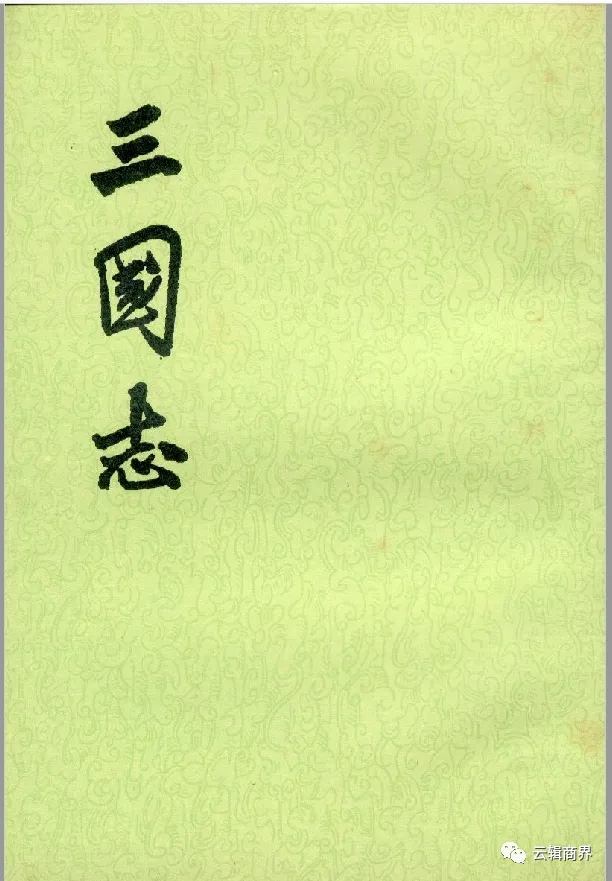 三國志
云辑商界